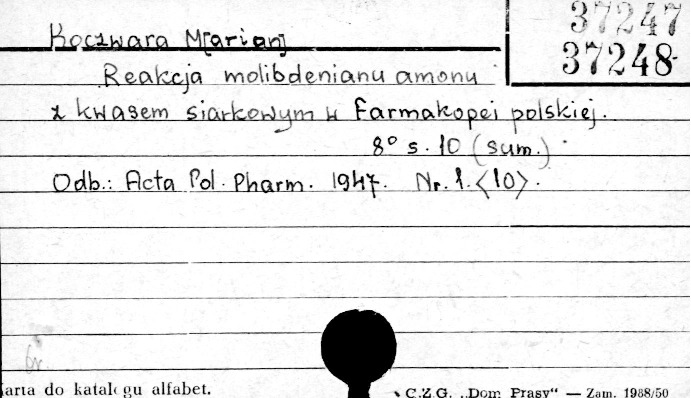 37247
Koczwara M[arian]
37248
Reakcja molibdenianu amonu
z kwasem siarkowym w Farmakopei polskiej.
8° s. 10 (sum.)
Odb.: Acta Pol. Pharm. 1947. Nr. 1. <10>.
arta do katalogu alfabet.
C.Z.G. „Dom Prasy“ — Zam. 1988/50